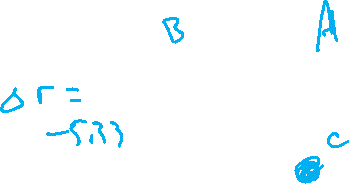 B A
Δr =
-5.33
C